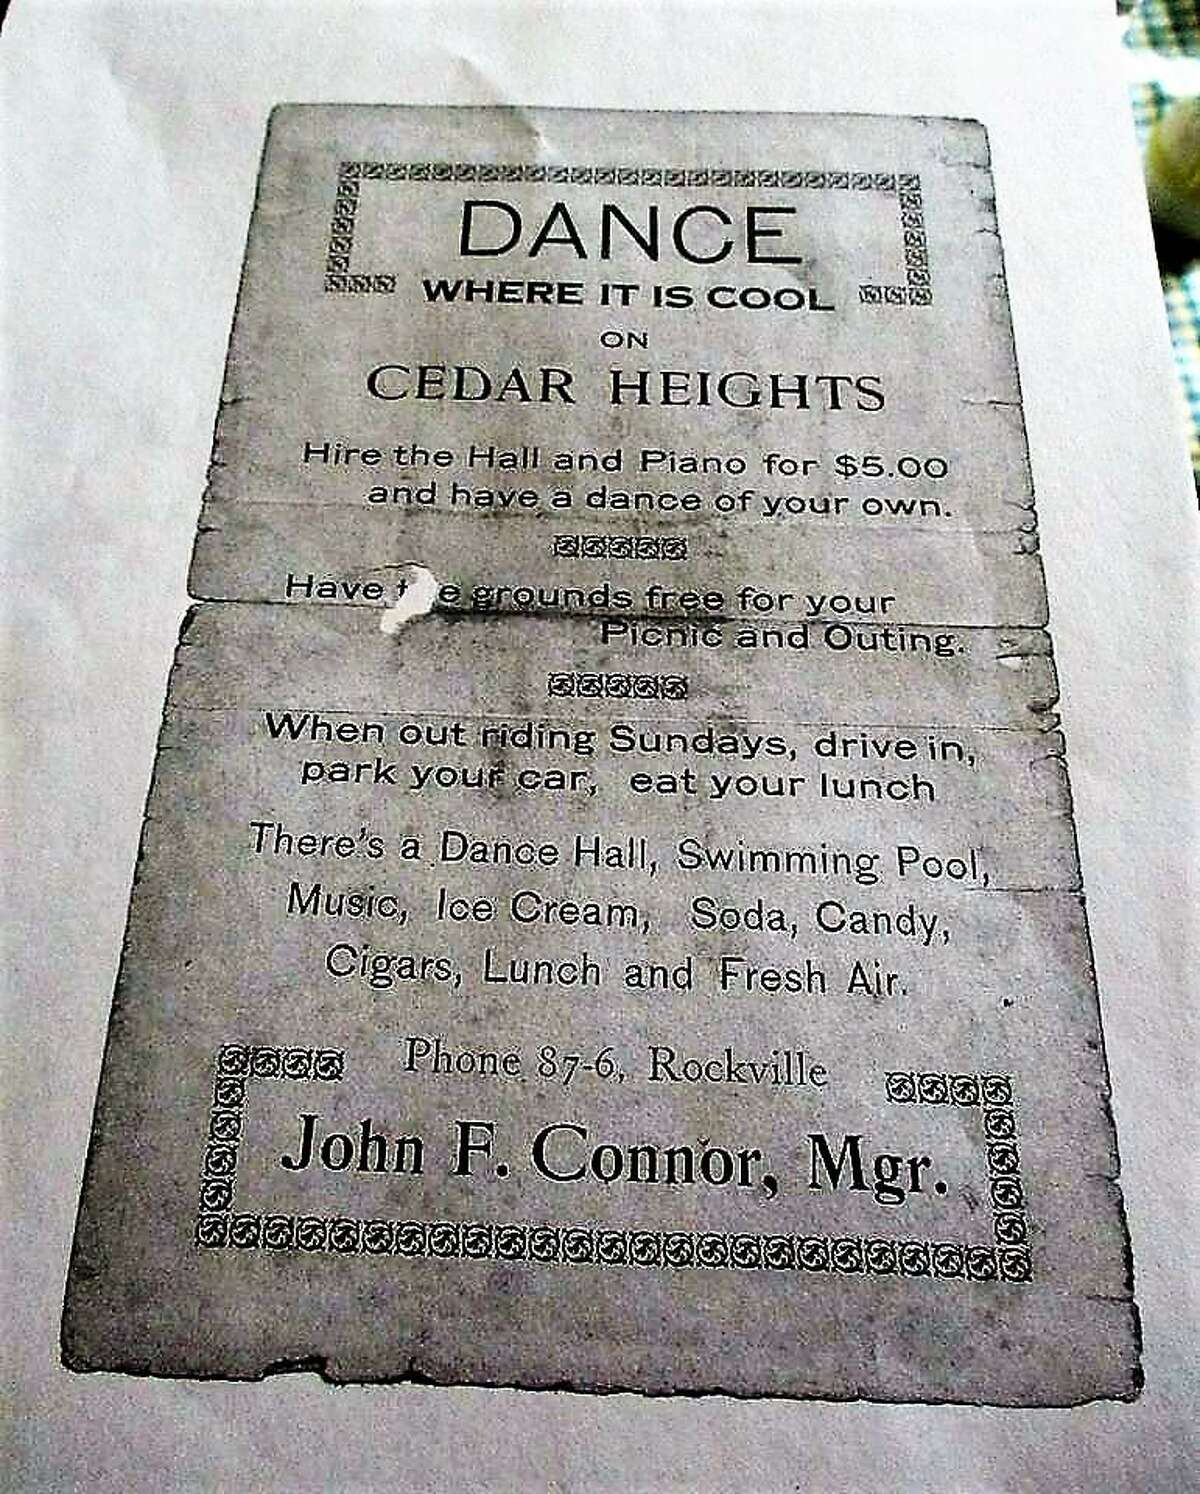 DANCE
WHERE IT IS COOL
ON
CEDAR HEIGHTS
Hire the Hall and Piano for $5.00
and have a dance of your own.
Have t e grounds free for your
Picnic and Outing.
When out riding Sundays, drive in,
park your car, eat your lunch
There's a Dance Hall, Swimming Pool,
Music, Ice Cream, Soda, Candy,
Cigars, Lunch and Fresh Air.
Phone 87-6, Rockville
John F. Connor, Mgr.